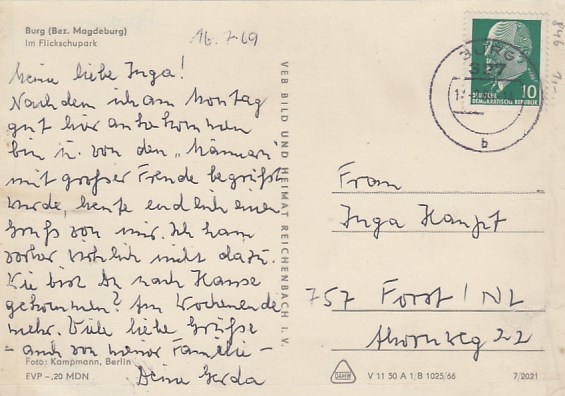 Burg (Bez. Magdeburg)
Im Flickschupark
16.7.69
Meine liebe Inga!
Nachdem ich am Montag
gut hier angekommen
bin u. von den „Männern"
mit großer Freude begrüßt
wurde, heute endlich einen
Gruß von mir. Ich kam
vorher wirklich nicht dazu.
Wie bist Du nach Hause
gekommen? Am Wochenende
mehr. Viele liebe Grüße
- auch von meiner Familie -
Deine Gerda
Foto: Kampmann, Berlin
EVP -,20 MDN
VEB BILD UND HEIMAT REICHENBACH I. V.
BURG
327
b
10
DEUTSCHE
DEMOKRATISCHE REPUBLIK
846
1,-
Frau
Inga Haupt
757 Forst / NL
Ahornweg 22
V 11 50 A 1/B 1025/66
7/2021